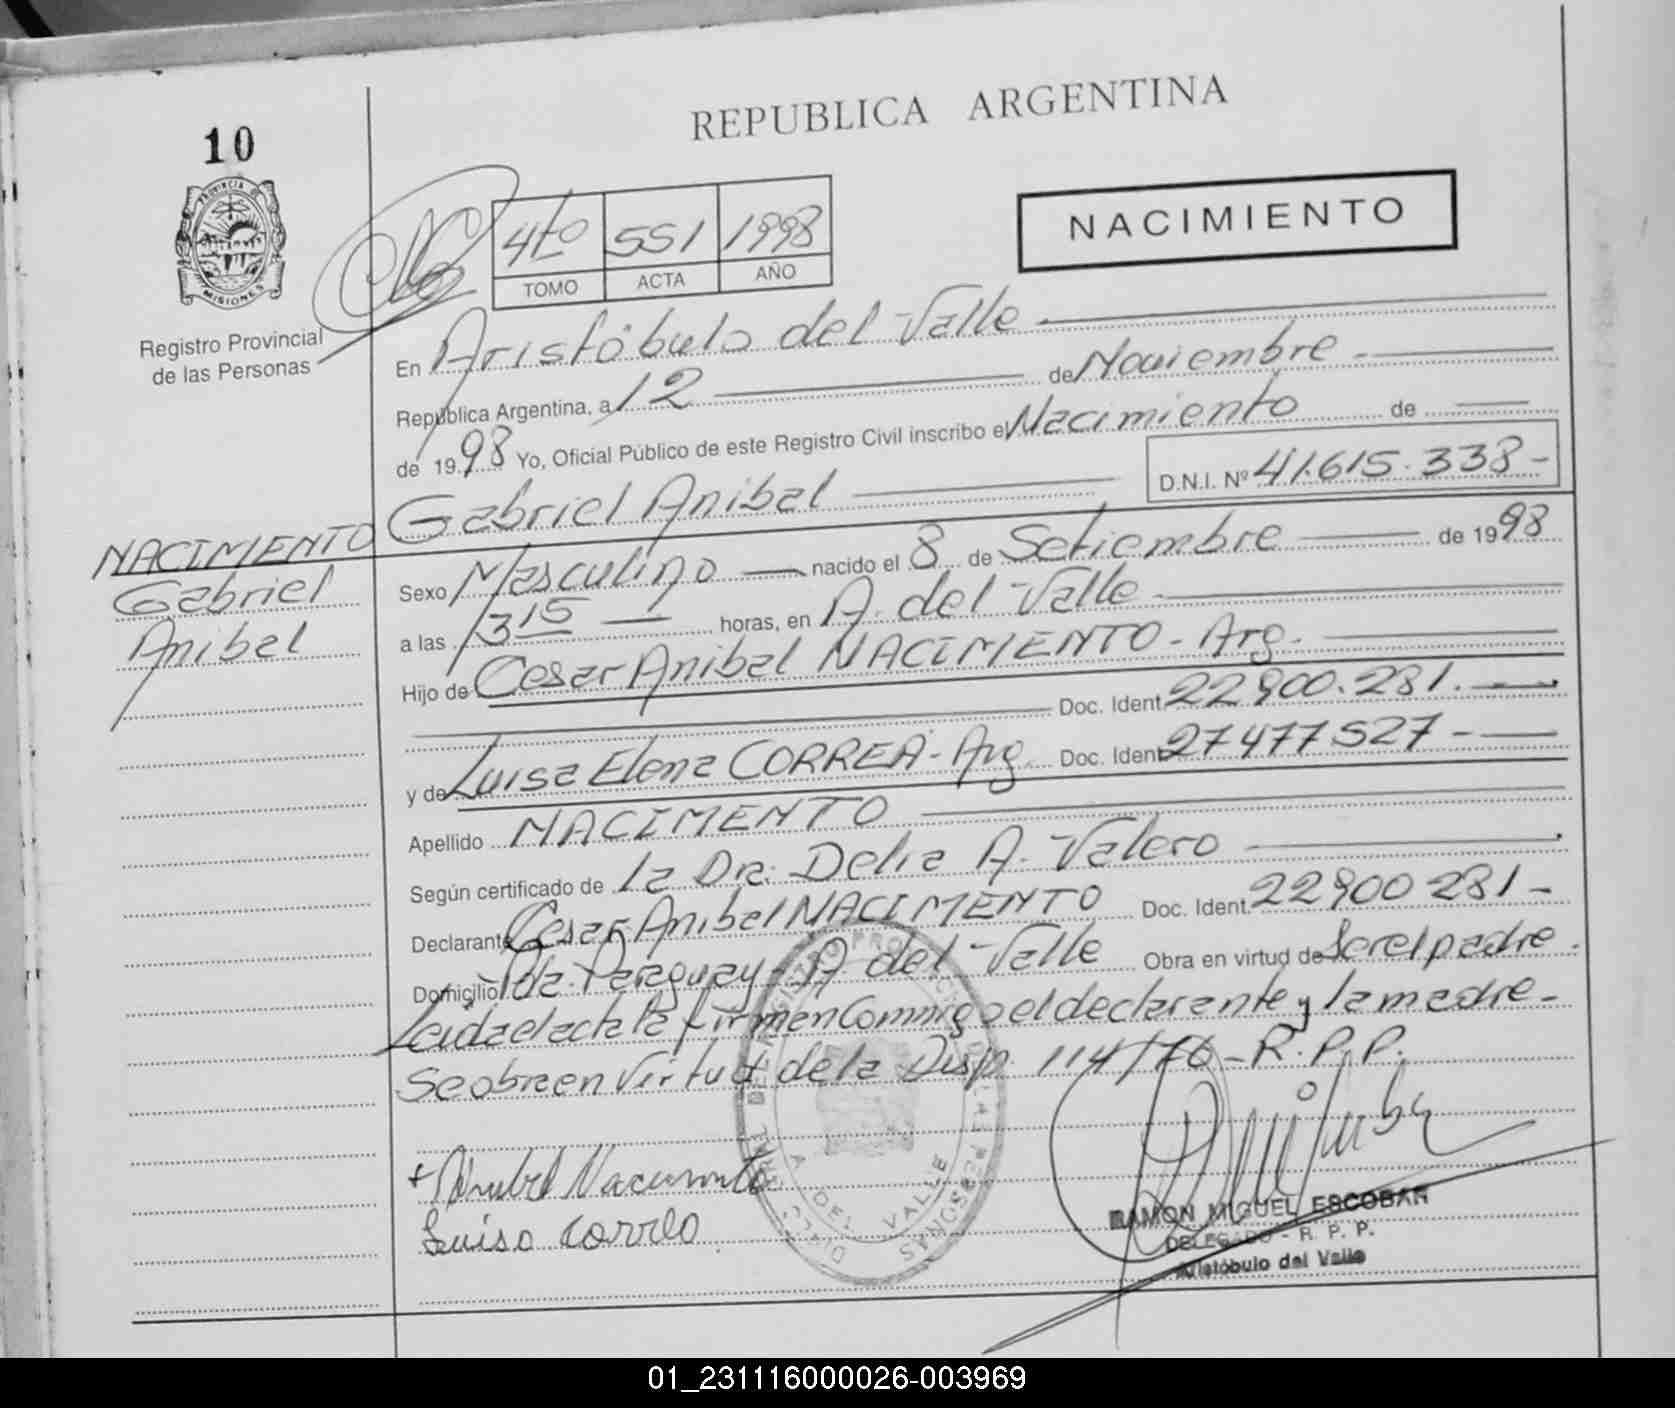 REPUBLICA ARGENTINA
10
PROVINCIA DE
MISIONES
Registro Provincial
de las Personas
4to 551 1998
TOMO ACTA AÑO
NACIMIENTO
En Aristóbulo del Valle
República Argentina, a 12 de Noviembre
de 1998 Yo, Oficial Público de este Registro Civil inscribo el Nacimiento de
D.N.I. Nº 41.615.338-
Gabriel Anibal
NACIMENTO
Gabriel
Anibal
Sexo Masculino nacido el 8 de Setiembre de 1998
a las 13 15 horas, en A. del Valle
Hijo de Cesar Anibal NACIMENTO - Arg.
Doc. Ident. 22900.281.
y de Luisa Elena CORREA - Arg. Doc. Ident. 27477527-
Apellido NACIMENTO
Según certificado de la Dra: Delia A. Valero
Declarante Cesar Anibal NACIMENTO Doc. Ident. 22900281-
Domicilio Pda. Paraguay - A. del Valle Obra en virtud de Ser el padre.
Leida el acta la firman Conmigo el declarante y la madre-
Se obra en Virtud de la Disp. 114/76-R.P.P.
+ Anibal Nacimento
Luisa Correa
A DEL VALLE
RAMON MIGUEL ESCOBAR
DELEGADO - R. P. P.
Aristóbulo del Valle
01_231116000026-003969